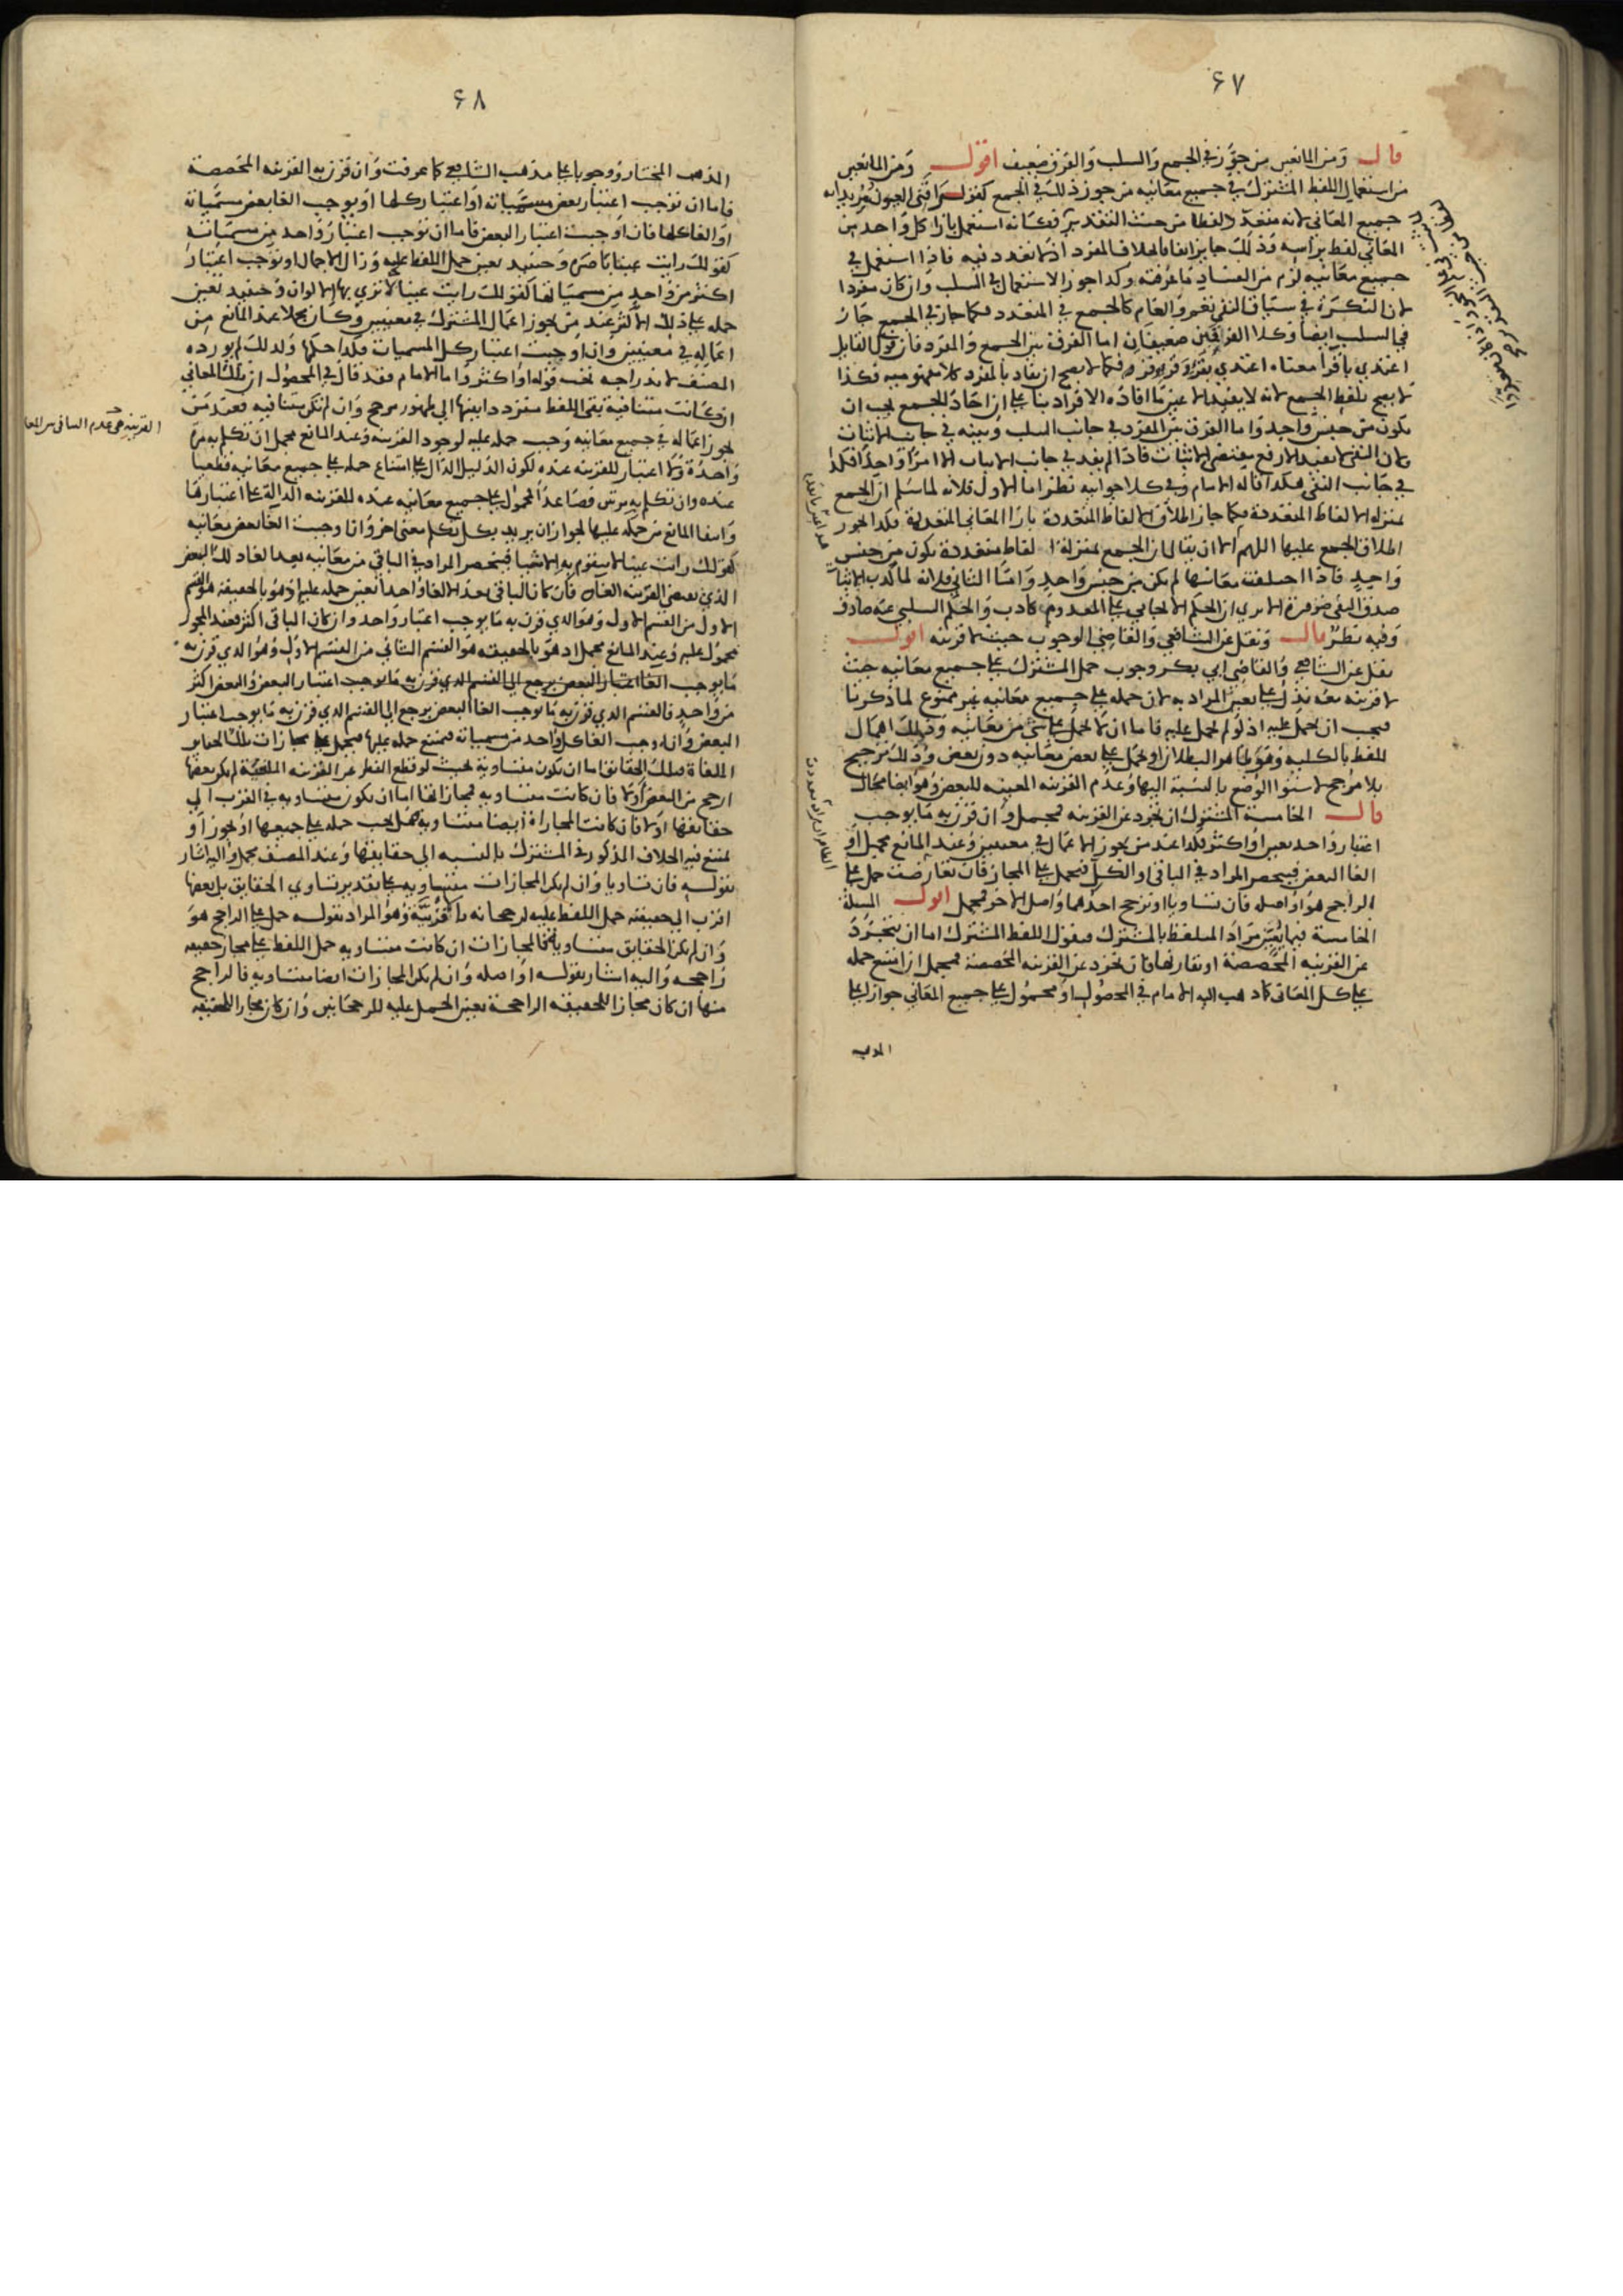 ٤٧
قال ومن المانعين من جوز في الجمع والسلب والفرق ضعيف اقول ومن المانعين
من استعمال اللفظ المشترك في جميع معانيه من جوز ذلك في الجمع كقولك
جميع المعاني لانه متعدد لفظا من حيث التقدير فكانه استعمل بازا كل واحد من
المعاني لفظ براسه وذلك جايز اتفاقا بخلاف المفرد اذ لا تعدد فيه فاذا استعمل في
جميع معانيه لزم من الفساد ما عرفته وكذا جوز الاستعمال في السلب وان كان مفردا
لان النكرة في سياق النفي تعم والعام كالجمع في المتعدد فكما جاز في الجمع جاز
في السلب ايضا وكلا الفرقين ضعيفان اما الفرق بين الجمع والمفرد فان قول القايل
اعتدي بالاقرا معناه اعتدي بقرء وقرء وقرء فكما لا يصح ان يفاد بالمفرد كلا مفهوميه فكذا
لا يصح بلفظ الجمع لانه لا يفيد الا عين ما افاده الافراد بنا على ان احاد الجمع يجب ان
يكون من جنس واحد واما الفرق بين المفرد في جانب السلب وبينه في جانب الاثبات
فلان النفي لا يفيد الا رفع مقتضى الاثبات فاذا لم يفد في جانب الاثبات الا امرا واحدا فكذا
في جانب النفي هكذا قاله الامام وفي كلا جوابيه نظر اما الاول فلانه لما سلم ان الجمع
بمنزلة الالفاظ المتعددة فكما جاز اطلاق الالفاظ المتعددة بازا المعاني المتعددة فكذا يجوز
اطلاق الجمع عليها اللهم الا ان يقال ان الجمع بمنزلة الفاظ متعددة يكون من جنس
واحد فاذا اختلفت معانيها لم يكن من جنس واحد واما الثاني فلانه لما كذب الاثبات
صدق النفي ضرورة الا ترى ان الحكم الايجابي على المعدوم كاذب والحكم السلبي عنه صادق
وفيه نظر قال ونقل عن الشافعي والقاضي الوجوب حيث لا قرينه اقول
نقل عن الشافعي والقاضي ابي بكر وجوب حمل المشترك على جميع معانيه حيث
لا قرينه معه تدل على تعين المراد به لان حمله على جميع معانيه غير ممنوع لما ذكرنا
فيجب ان يحمل عليه اذ لو لم يحمل عليه فاما ان لا يحمل على شي من معانيه وذلك اهمال
للفظ بالكليه وهو ظاهر البطلان او يحمل على بعض معانيه دون بعض وذلك ترجيح
بلا مرجح لاستوا الوضع بالنسبة اليها وعدم القرينه المعينه للبعض وهو ايضا محال
قال الخامسة المشترك ان تجرد عن القرينه فمجمل وان قرن به ما يوجب
اعتبار واحد تعين او اكثر فكذا عند من يجوز الاعمال في معنيين وعند المانع مجمل او
الغا البعض فينحصر المراد في الباقي او الكل فيحمل على المجاز فان تعارضت حمل على
الراجح هو او اصله فان تساويا او ترجح احدهما واصل الاخر فمجمل اقول المسئلة
الخامسة فيما يتبين مراد المتلفظ بالمشترك فنقول اللفظ المشترك اما ان يتجرد
عن القرينه المخصصة او تقارنها فان تجرد عن القرينه المخصصة فمجمل ان امتنع حمله
على كل المعاني كما ذهب اليه الامام في المحصول او محمول على جميع المعاني جوازا على
المذهب
٤٨
المذهب المختار ووجوبا على مذهب الشافعي كما عرفت وان قرن به القرينه المخصصة
فاما ان توجب اعتبار بعض مسمياته او اعتبار كلها او يوجب الغا بعض مسمياته
او الغا كلها فان اوجبت اعتبار البعض فاما ان توجب اعتبار واحد من مسمياته
كقولك رايت عينا باصره وحينيذ تعين حمل اللفظ عليه وزال الاجمال او توجب اعتبار
اكثر من واحد من مسمياتها كقولك رايت عينا لا ترى بها الالوان وحينيذ تعين
حمله على ذلك الاكثر عند من يجوز اعمال المشترك في معنيين وكان مجملا عند المانع من
اعماله في معنيين وان اوجبت اعتبار كل المسميات فكذا حكمها ولذلك لم يورده
المصنف لاندراجه تحت قوله او اكثر واما الامام فقد قال في المحصول ان تلك المعاني
ان كانت متنافية بقي اللفظ مترددا بينها الى ظهور مرجح وان لم تكن متنافيه فعند من
يجوز اعماله في جميع معانيه وجب حمله عليه لوجود القرينه وعند المانع مجمل ان تكلم به مرة
واحدة ولا اعتبار للقرينه عنده لكون الدليل الدال على امتناع حمله على جميع معانيه قطعيا
عنده وان تكلم به مرتين فصاعدا المحمول على جميع معانيه عنده للقرينه الدالة على اعتبارها
وانتفا المانع من حمله عليها لجواز ان يريد بكل تكلم معنى اخر واذا وجبت الغا بعض معانيه
كقولك رايت عينا لا يتقوم به الاشيا فينحصر المراد في الباقي من معانيه بعد الغا ذلك البعض
الذي تعطي القرينه الغاه فان كان الباقي بعد الالغا واحدا تعين حمله عليه وهو بالحقيقة هو القسم
الاول من القسم الاول وهو الذي قرن به ما يوجب اعتبار واحد وان كان الباقي اكثر فعند المجوز
محمول عليه وعند المانع مجمل اذ هو بالحقيقه هو القسم الثاني من القسم الاول وهو الذي قرن به
ما يوجب الغا اعتبار البعض يرجع الى القسم الذي قرن به ما يوجب اعتبار البعض والبعض اكثر
من واحد فالقسم الذي قرن به ما يوجب الغا البعض يرجع الى القسم الذي قرن به ما يوجب اعتبار
البعض وان اوجب الغا كل واحد من مسمياته فيمتنع حمله عليها فيحمل على مجازات تلك الحقايق
الملغاة فتلك الحقايق اما ان يكون متساوية بحيث لو قطع النظر عن القرينه الملغية لم يكن بعضها
ارجح من البعض او لا فان كانت متساويه فمجازاتها اما ان يكون متساويه في القرب الى
حقايقها او لا فان كانت المجازاة ايضا متساويه فهل يجب حمله على جميعها او يجوز او
يمتنع فيه الخلاف المذكور في المشترك بالنسبه الى حقايقها وعند المصنف مجمل واليه اشار
بقوله فان تساويا وان لم يكن المجازات متساويه على تقدير تساوي الحقايق بل بعضها
اقرب الى حقيقته حمل اللفظ عليه لرجحانه بالقربية وهو المراد بقوله حمل على الراجح هو
وان لم يكن الحقايق متساوية فالمجازات ان كانت متساويه حمل اللفظ على مجاز حقيقه
راجحه واليه اشار بقوله او اصله وان لم يكن المجازات ايضا متساويه فالراجح
منها ان كان مجازا للحقيقه الراجحة تعين الحمل عليه للرجحانين وان كان مجازا للحقيقه
القرينه هي عدم التنافي بين المعاني